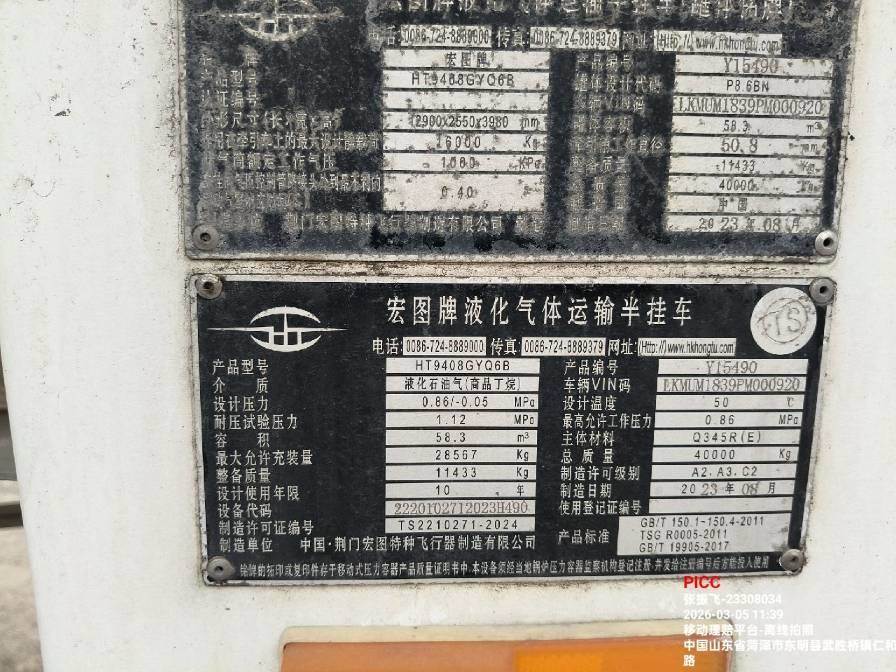 宏图牌液化气体运输半挂车
电话: 0086-724-8889000 传真: 0086-724-8889379 网址: (Http://)www.hkhongtu.com
宏图牌
产品编号 Y15490
产品型号 HT9408GYQ6B
罐体设计代码 P8.6BN
LKMUM1839PM000920
外形尺寸(长×宽×高) 12900x2550x3980 mm
58.3 m³
16000 Kg
50.8 mm
1000 KPa
整备质量 11433 Kg
40000 Kg
0.40
中国
制造日期 2023年08月
宏图牌液化气体运输半挂车
TS
电话: 0086-724-8889000 传真: 0086-724-8889379 网址: (Http://)www.hkhongtu.com
产品型号 HT9408GYQ6B 产品编号 Y15490
介质 液化石油气(商品丁烷) 车辆VIN码 LKMUM1839PM000920
设计压力 0.86/-0.05 MPa 设计温度 50 ℃
耐压试验压力 1.12 MPa 最高允许工作压力 0.86 MPa
容积 58.3 m³ 主体材料 Q345R(E)
最大允许充装量 28567 Kg 总质量 40000 Kg
整备质量 11433 Kg 制造许可级别 A2、A3、C2
设计使用年限 10 年 制造日期 2023年08月
设备代码 2220102712023H490 使用登记证编号
制造许可证编号 TS2210271-2024 产品标准 GB/T 150.1~150.4-2011
TSG R0005-2011
GB/T 19905-2017
制造单位 中国·荆门宏图特种飞行器制造有限公司
铭牌的拓印或复印件存于移动式压力容器产品质量证明书中.本设备须经当地锅炉压力容器监察机构登记注册.并发给注册编号后方能投入使用
PICC
张振飞-23308034
2026-03-05 11:39
移动理赔平台-离线拍照
中国山东省菏泽市东明县武胜桥镇仁和
路